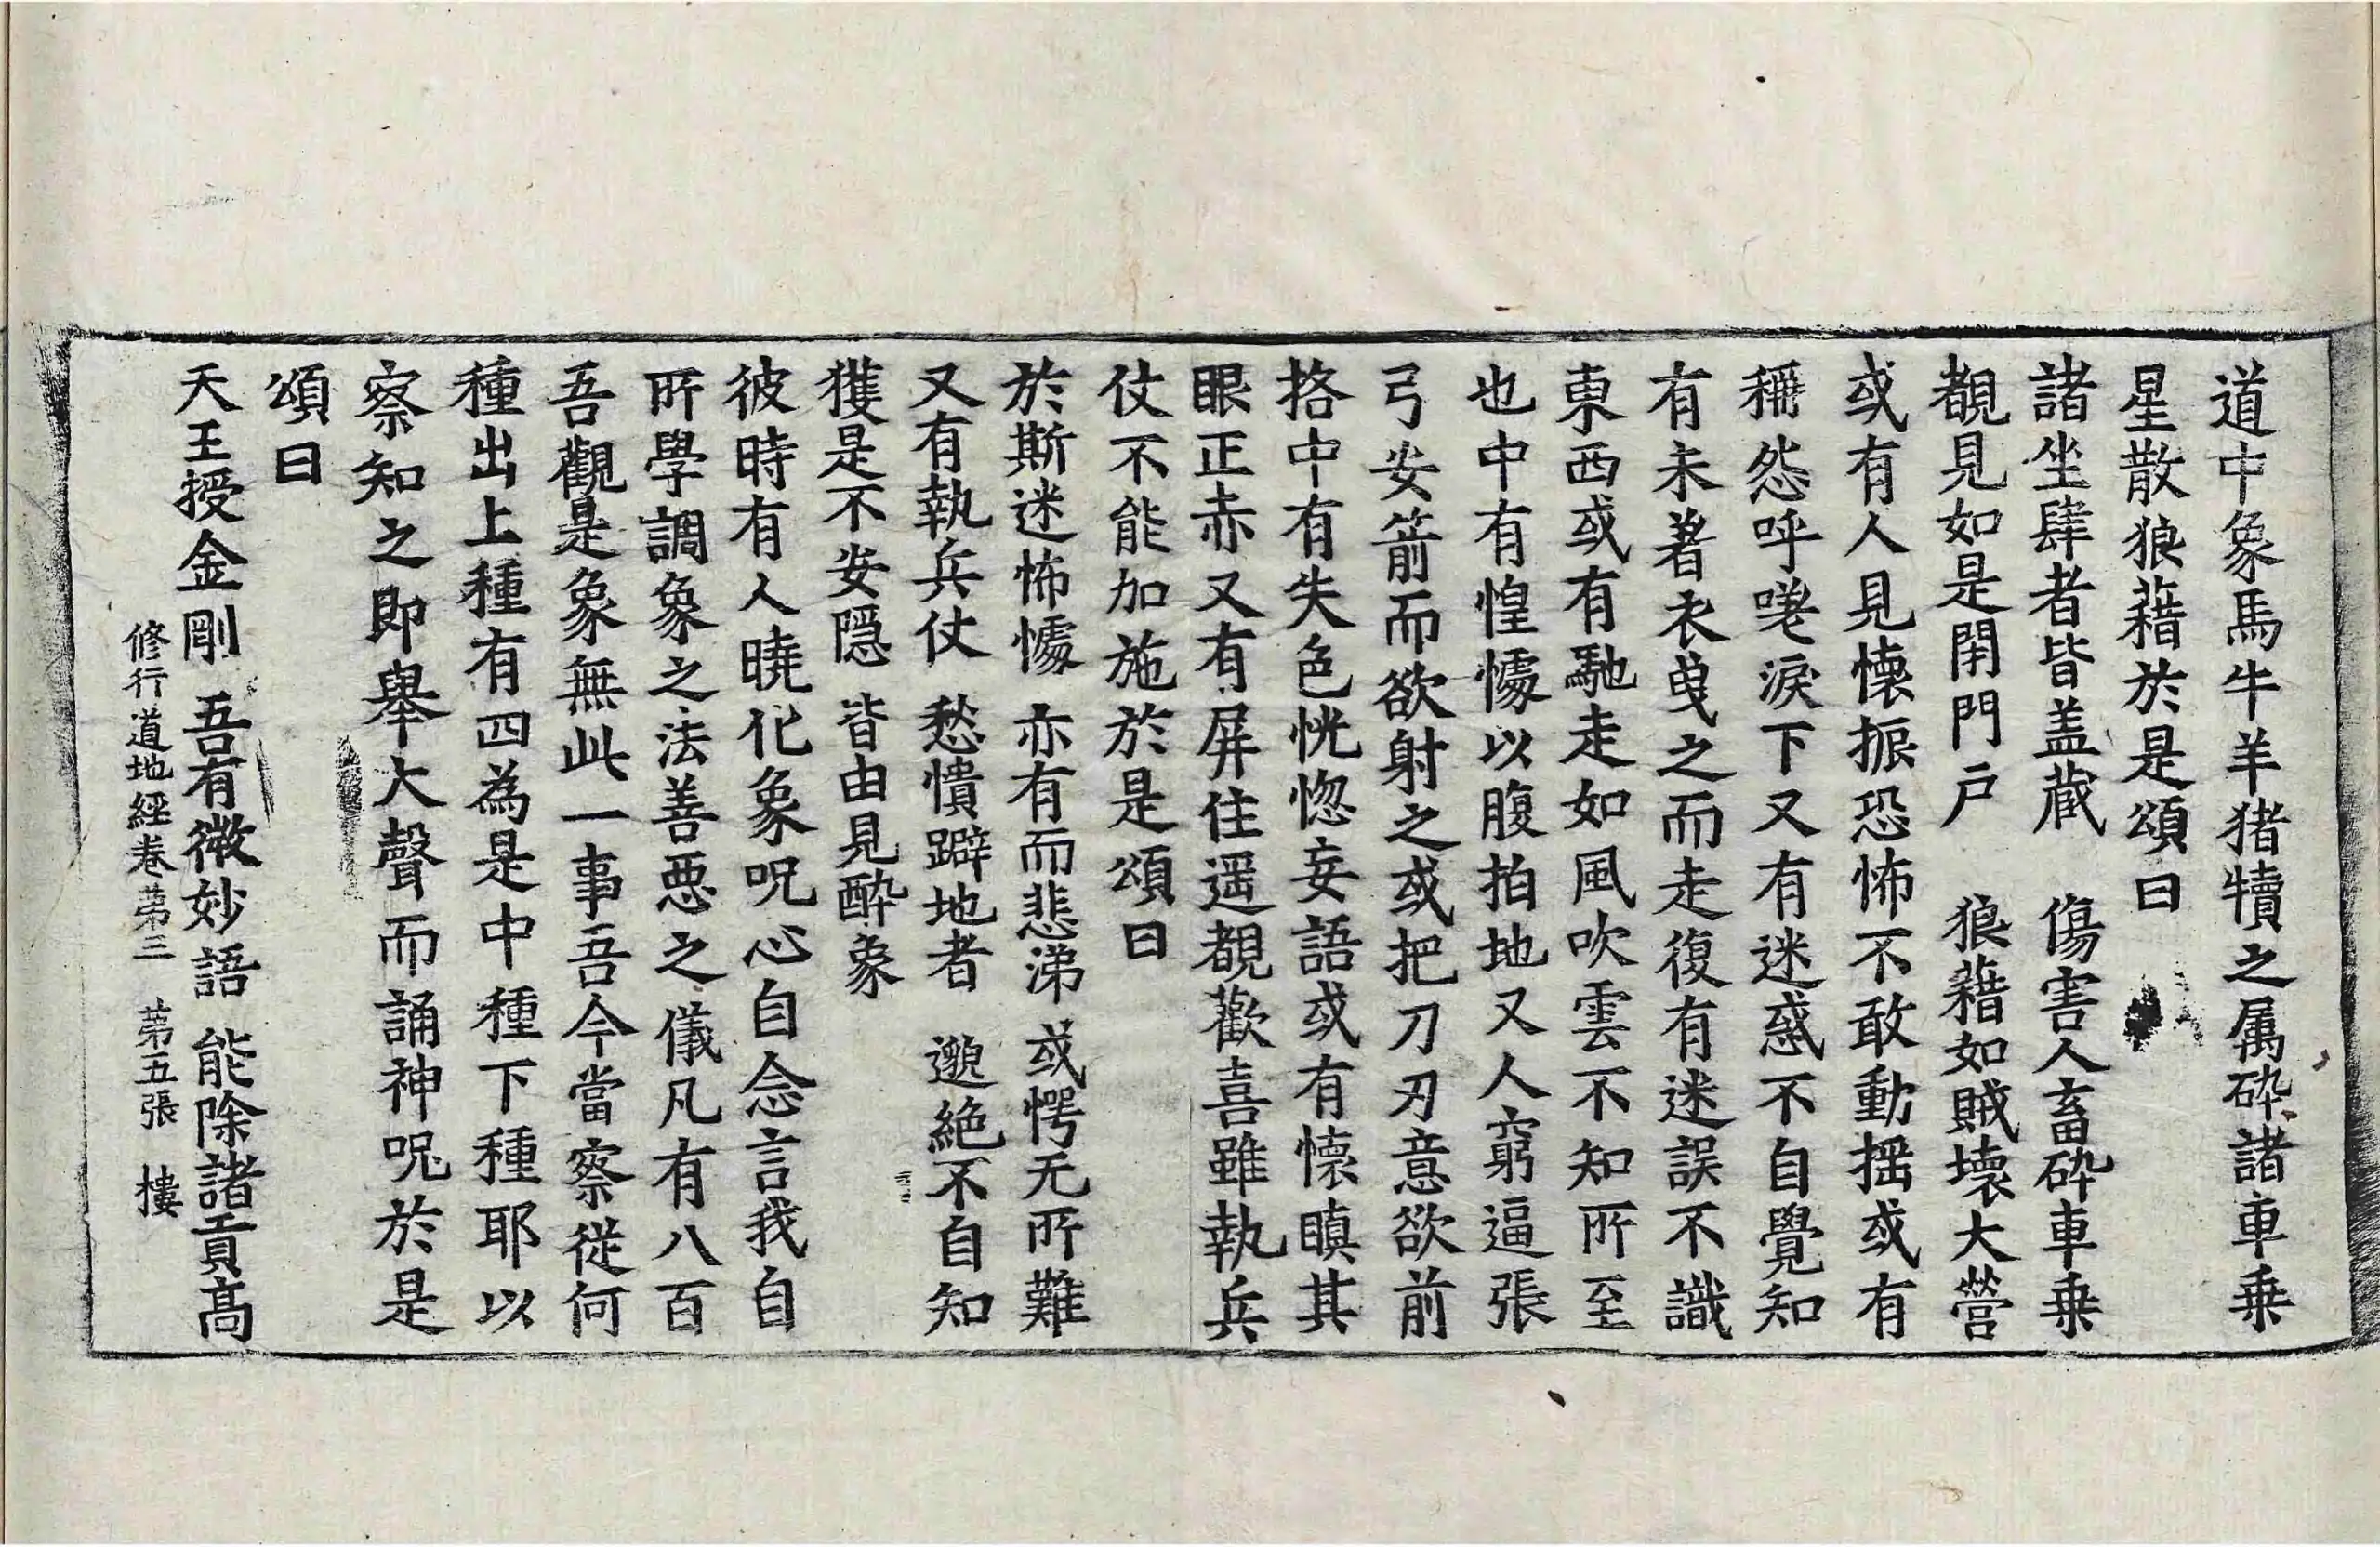 道中象馬牛羊猪犢之属碎諸車乗
星散狼藉於是頌曰
諸坐肆者皆盖蔵　傷害人畜碎車乗
覩見如是閉門戶　狼藉如賊壊大營
或有人見懐振恐怖不敢動揺或有
稱怨呼嗟淚下又有迷惑不自覺知
有未著衣曳之而走復有迷誤不識
東西或有馳走如風吹雲不知所至
也中有惶懅以腹拍地又人窮逼張
弓安箭而欲射之或把刀刃意欲前
挌中有失色恍惚妄語或有懐瞋其
眼正赤又有屏住遥覩歡喜雖執兵
仗不能加施於是頌曰
於斯迷怖懅　亦有而悲涕　或愕无所難
又有執兵仗　愁憒躃地者　邈絶不自知
獲是不安隠　皆由見酔象
彼時有人曉化象呪心自念言我自
所學調象之法善惡之儀凡有八百
吾觀是象無此一事吾今當察從何
種出上種有四為是中種下種耶以
察知之即舉大聲而誦神呪於是
頌曰
天王授金剛　吾有微妙語　能除諸貢髙
修行道地經卷苐三　苐五張　樓